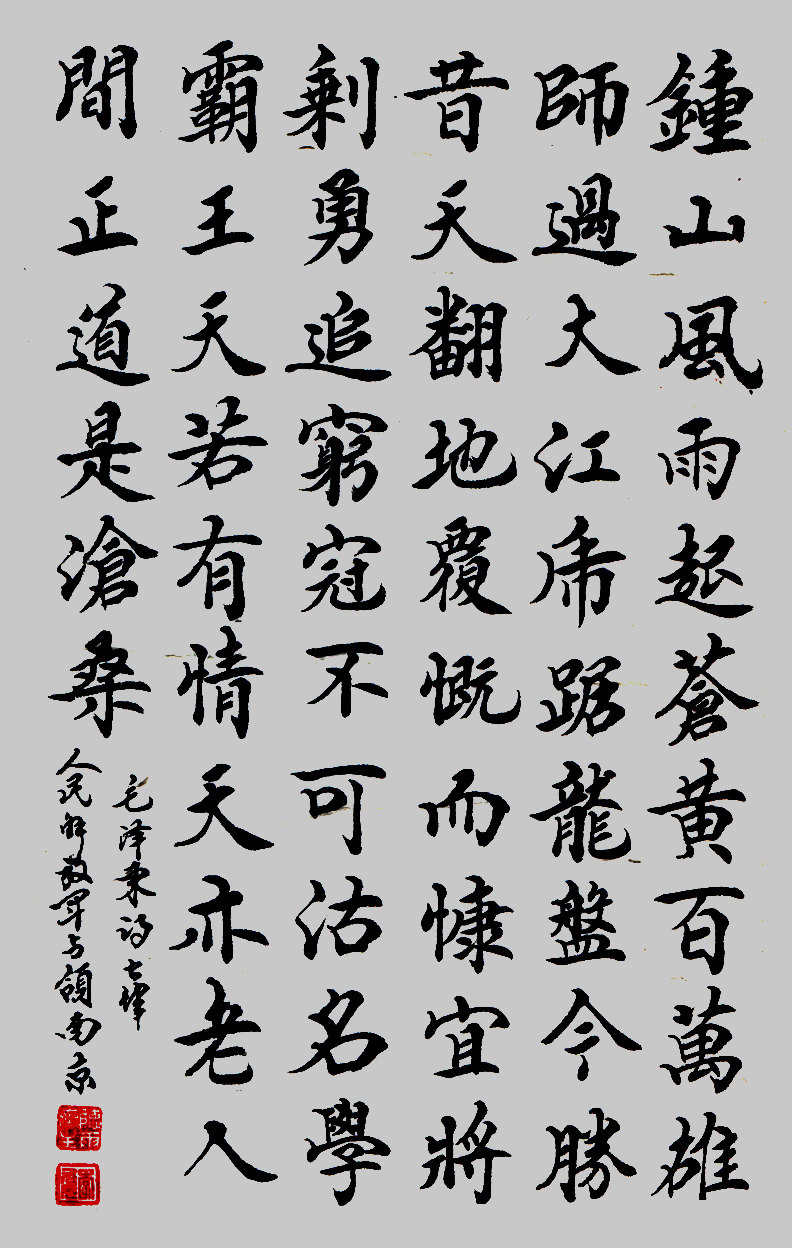 鍾山風雨起蒼黄百萬雄
師過大江虎踞龍盤今勝
昔天翻地覆慨而慷宜將
剩勇追窮寇不可沽名學
霸王天若有情天亦老人
間正道是滄桑
毛泽東诗七律
人民解放军占領南京